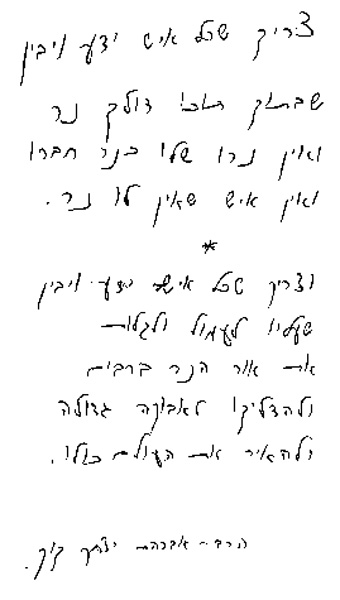 צריך שכל איש ידע ויבין
שבתוך תוכו דולק נר
ואין נרו שלו כנר חברו
ואין איש שאין לו נר.
*
וצריך שכל איש ידע ויבין
שעליו לעמול ולגלות
את אור הנר ברבים
ולהדליקו לאבוקה גדולה
ולהאיר את העולם כולו.
הרב אברהם יצחק קוק.